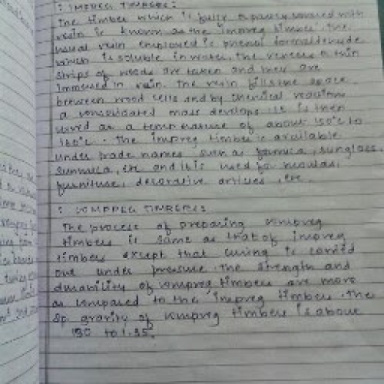 : IMPREG TIMBERS:
The timber which is fully or partly covered with
resin is known as the impreg timber. The
usual resin employed is phenol formaldehyde
which is soluble in water. The veneers or thin
strips of wood are taken and they are
immersed in resin. The resin fills the space
between wood cells and by chemical reaction
a consolidated mass develops. It is then
cured at a temperature of about 150°C to
160°C. The impreg timber is available
under trade names such as formica, sunglass,
sunmica, etc and it is used for moulds,
furniture, decorative articles, etc.
: COMPREG TIMBERS:
The process of preparing compreg
timbers is same as that of impreg
timbers except that curing is carried
out under pressure. The strength and
durability of compreg timbers are more
as compared to the impreg timbers. The
sp gravity of compreg timbers is about
1.30 to 1.35.